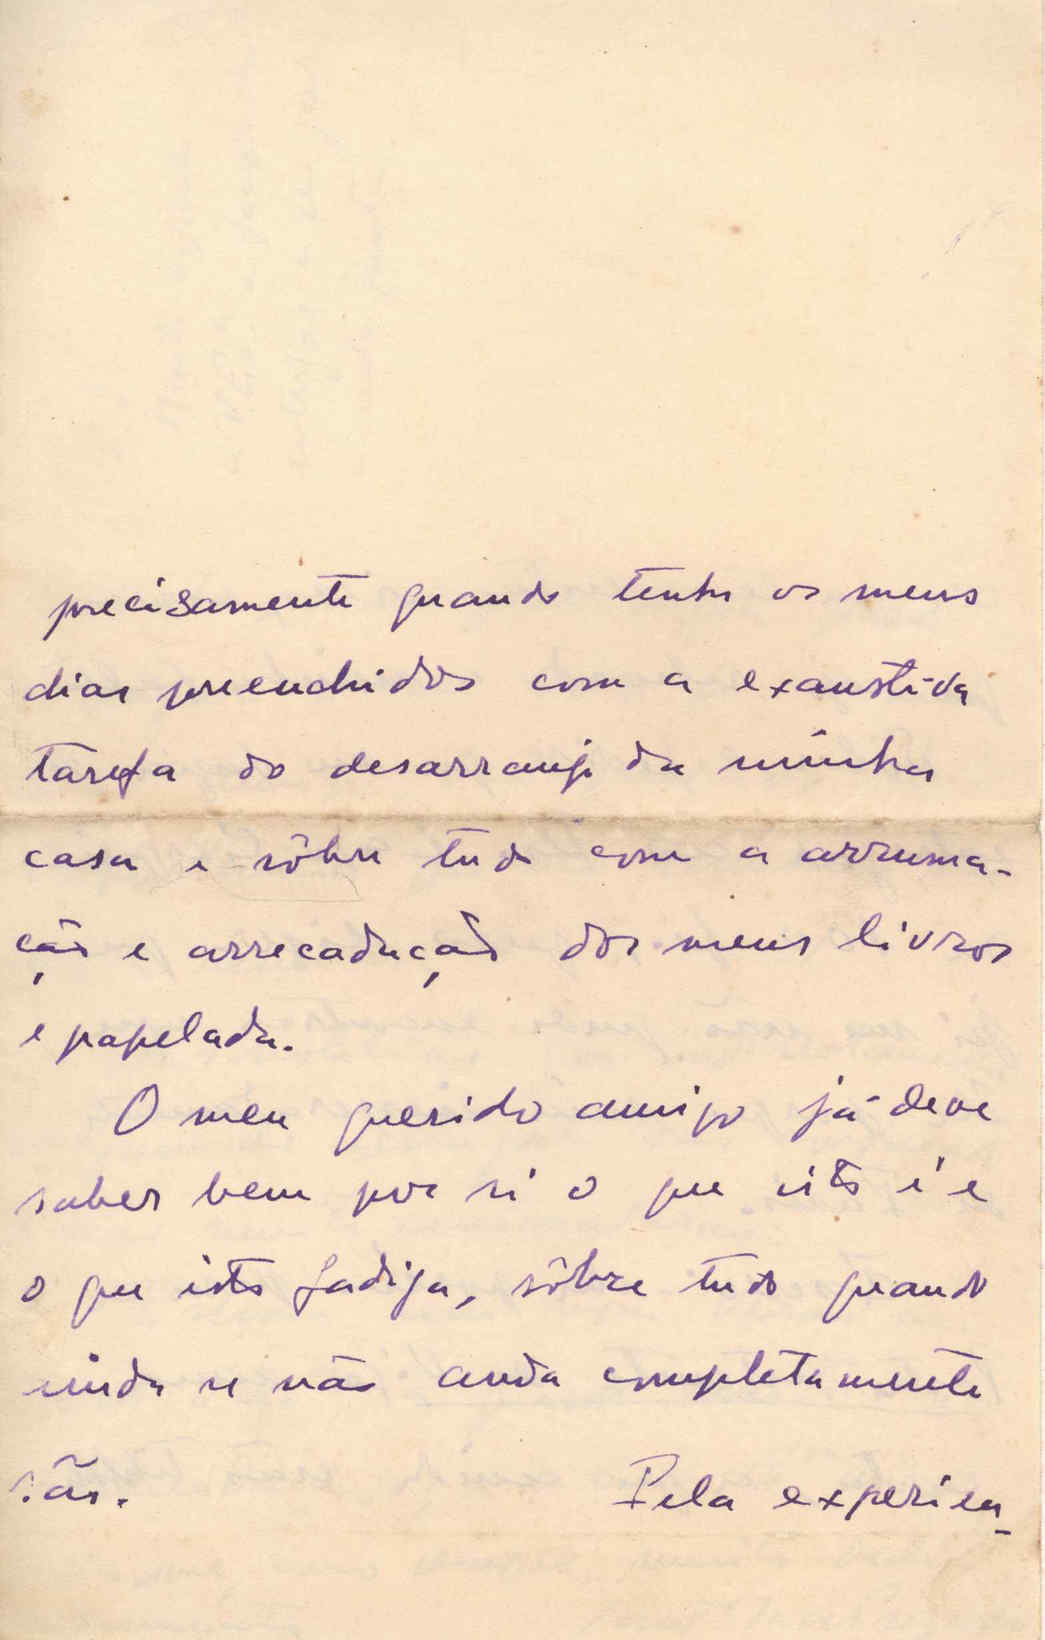 precisamente quando tenho os meus
dias preenchidos com a exaustiva
tarefa do desarranjo da minha
casa e sôbre tudo com a arruma-
ção e arrecadação dos meus livros
e papelada.
O meu querido amigo já deve
saber bem por si o que isto é e
o que isto fadiga, sôbre tudo quando
inda se não anda completamente
são. Pela experien-